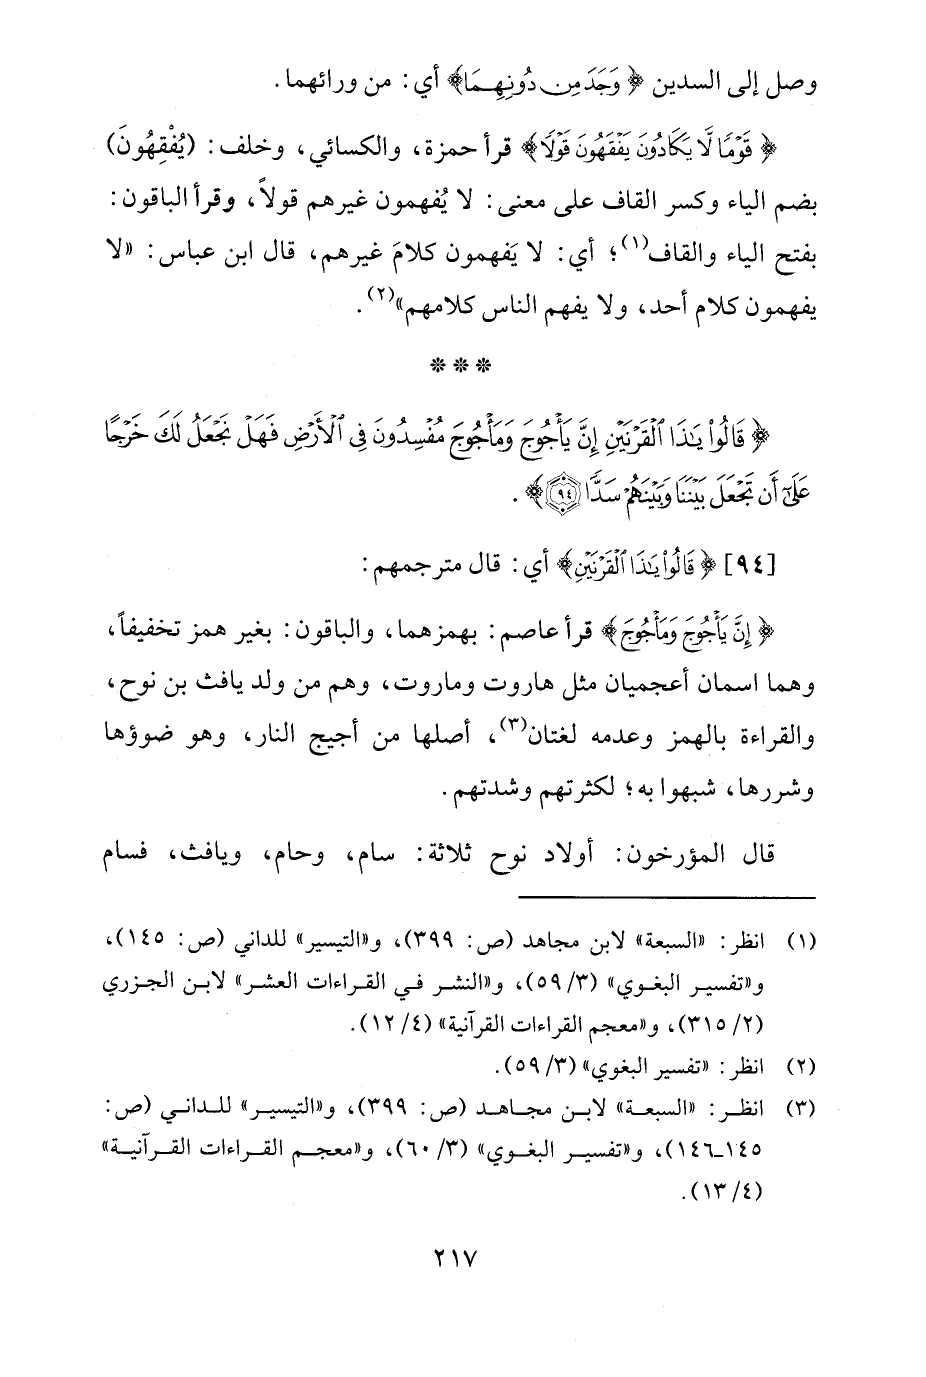 وصل إلى السدين ﴿ وَجَدَ مِن دُونِهِمَا﴾ أي: من ورائهما.
﴿ قَوْمًا لَّا يَكَادُونَ يَفْقَهُونَ قَوْلًا﴾ قرأ حمزة، والكسائي، وخلف: (يُفْقِهُونَ)
بضم الياء وكسر القاف على معنى: لا يُفهمون غيرهم قولاً، وقرأ الباقون:
بفتح الياء والقاف(١)؛ أي: لا يَفهمون كلامَ غيرهم، قال ابن عباس: «لا
يفهمون كلام أحد، ولا يفهم الناس كلامهم»(٢).
* * *
﴿ قَالُوا۟ يَـٰذَا ٱلْقَرْنَيْنِ إِنَّ يَأْجُوجَ وَمَأْجُوجَ مُفْسِدُونَ فِى ٱلْأَرْضِ فَهَلْ نَجْعَلُ لَكَ خَرْجًا
عَلَىٰٓ أَن تَجْعَلَ بَيْنَنَا وَبَيْنَهُمْ سَدًّا ٩٤﴾ .
[٩٤] ﴿ قَالُوا۟ يَـٰذَا ٱلْقَرْنَيْنِ﴾ أي: قال مترجمهم:
﴿ إِنَّ يَأْجُوجَ وَمَأْجُوجَ﴾ قرأ عاصم: بهمزهما، والباقون: بغير همز تخفيفاً،
وهما اسمان أعجميان مثل هاروت وماروت، وهم من ولد يافث بن نوح،
والقراءة بالهمز وعدمه لغتان(٣)، أصلها من أجيج النار، وهو ضوؤها
وشررها، شبهوا به؛ لكثرتهم وشدتهم.
قال المؤرخون: أولاد نوح ثلاثة: سام، وحام، ويافث، فسام
(١) انظر: «السبعة» لابن مجاهد (ص: ٣٩٩)، و«التيسير» للداني (ص: ١٤٥)،
و«تفسير البغوي» (٣/ ٥٩)، و«النشر في القراءات العشر» لابن الجزري
(٢/ ٣١٥)، و«معجم القراءات القرآنية» (٤/ ١٢).
(٢) انظر: «تفسير البغوي» (٣/ ٥٩).
(٣) انظر: «السبعة» لابن مجاهد (ص: ٣٩٩)، و«التيسير» للداني (ص:
١٤٥ـ١٤٦)، و«تفسير البغوي» (٣/ ٦٠)، و«معجم القراءات القرآنية»
(٤/ ١٣).
٢١٧